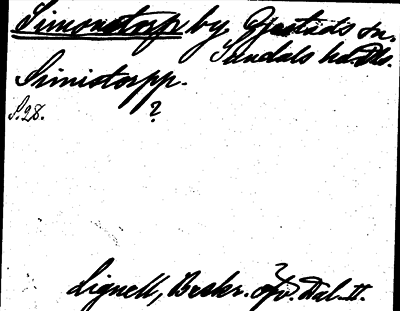 Simonstorp by Gestads sn.
Sundals hd. Ds.
Simistorpp.
S. 28. ?
Lignell, Beskr. öfv. Dal. II.